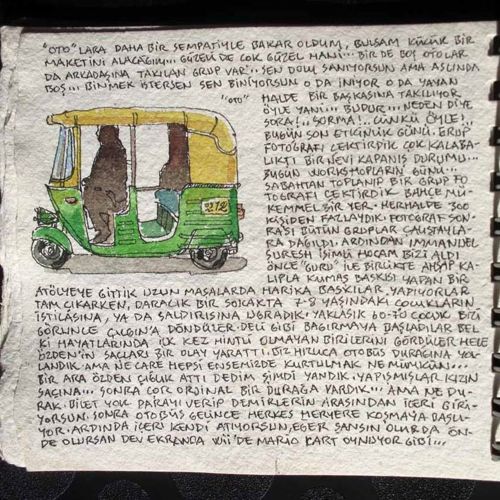 "OTO" LARA DAHA BİR SEMPATİYLE BAKAR OLDUM, BULSAM KÜÇÜK BİR
MAKETİNİ ALACAĞIM... GÜZEL DE ÇOK GÜZEL HANİ... BİR DE BOŞ OTOLAR
DA ARKADAŞINA TAKILAN GRUP VAR... SEN DOLU SANIYORSUN AMA ASLINDA
BOŞ... BİNİMEK İSTERSEN SEN BİNİYORSUN O DA İNİYOR O DA YAYAN
"OTO" HALDE BİR BAŞKASINA TAKILIYOR
ÖYLE YANİ... BUDUR... NEDEN DİYE
SORA!.. SORMA!.. ÇÜNKÜ ÖYLE!..
BUGÜN SON ETKİNLİK GÜNÜ. GRUP
FOTOĞRAFI ÇEKTİRDİK ÇOK KALABA-
LIKTI BİR NEVİ KAPANIŞ DURUMU...
BUGÜN WORKSHOPLARIN GÜNÜ...
SABAHTAN TOPLANIP BİR GRUP FO
TOĞRAFI ÇEKTİRDİK BAHÇE MÜ-
KEMMEL BİR YER. HERHALDE 300
KİŞİDEN FAZLAYDIK. FOTOĞRAF SON-
RASI BÜTÜN GRUPLAR ÇALIŞTAYLA-
RA DAĞILDI. ARDINDAN IMMANUEL
SURESH İSİMLİ HOCAM BİZİ ALDI
ÖNCE "GURU" İLE BİRLİKTE AHŞAP KA-
LIPLA KUMAŞ BASKISI YAPAN BİR
ATÖLYEYE GİTTİK UZUN MASALARDA HARİKA BASKILAR YAPIYORLAR
TAM ÇIKARKEN, DARACIK BİR SOKAKTA 7-8 YAŞINDAKİ ÇOCUKLARIN
İSTİLASINA, YA DA SALDIRISINA UĞRADIK. YAKLAŞIK 60-70 ÇOCUK BİZİ
GÖRÜNCE ÇILGINA DÖNDÜLER. DELİ GİBİ BAĞIRMAYA BAŞLADILAR BEL
Kİ HAYATLARINDA İLK KEZ HİNTLİ OLMAYAN BİRİLERİNİ GÖRDÜLER HELE
ÖZDEN'İN SAÇLARI BİR OLAY YARATTI. BİZ HIZLICA OTOBÜS DURAĞINA YOL
LANDIK. AMA NE ÇARE HEPSİ ENSEMİZDE KURTULMAK NE MÜMKÜN...
BİR ARA ÖZDEN ÇIĞLIK ATTI DEDİM ŞİMDİ YANDIK. YAPIŞMIŞLAR KIZIN
SAÇINA... SONRA ÇOK ORJİNAL BİR DURAĞA VARDIK... AMA NE DU-
RAK. BİLET YOK PARAYI VERİP DEMİRLERİN ARASINDAN İÇERİ GİRİ-
YORSUN. SONRA OTOBÜS GELİNCE HERKES HERYERE KOŞMAYA BAŞLI-
YOR. ARDINDA İÇERİ KENDİ ATIYORSUN, EĞER ŞANSIN OLUR DA ÖN-
DE OLURSAN DEV EKRANDA Wİİ'DE MARIO KART OYNUYOR GİBİ...